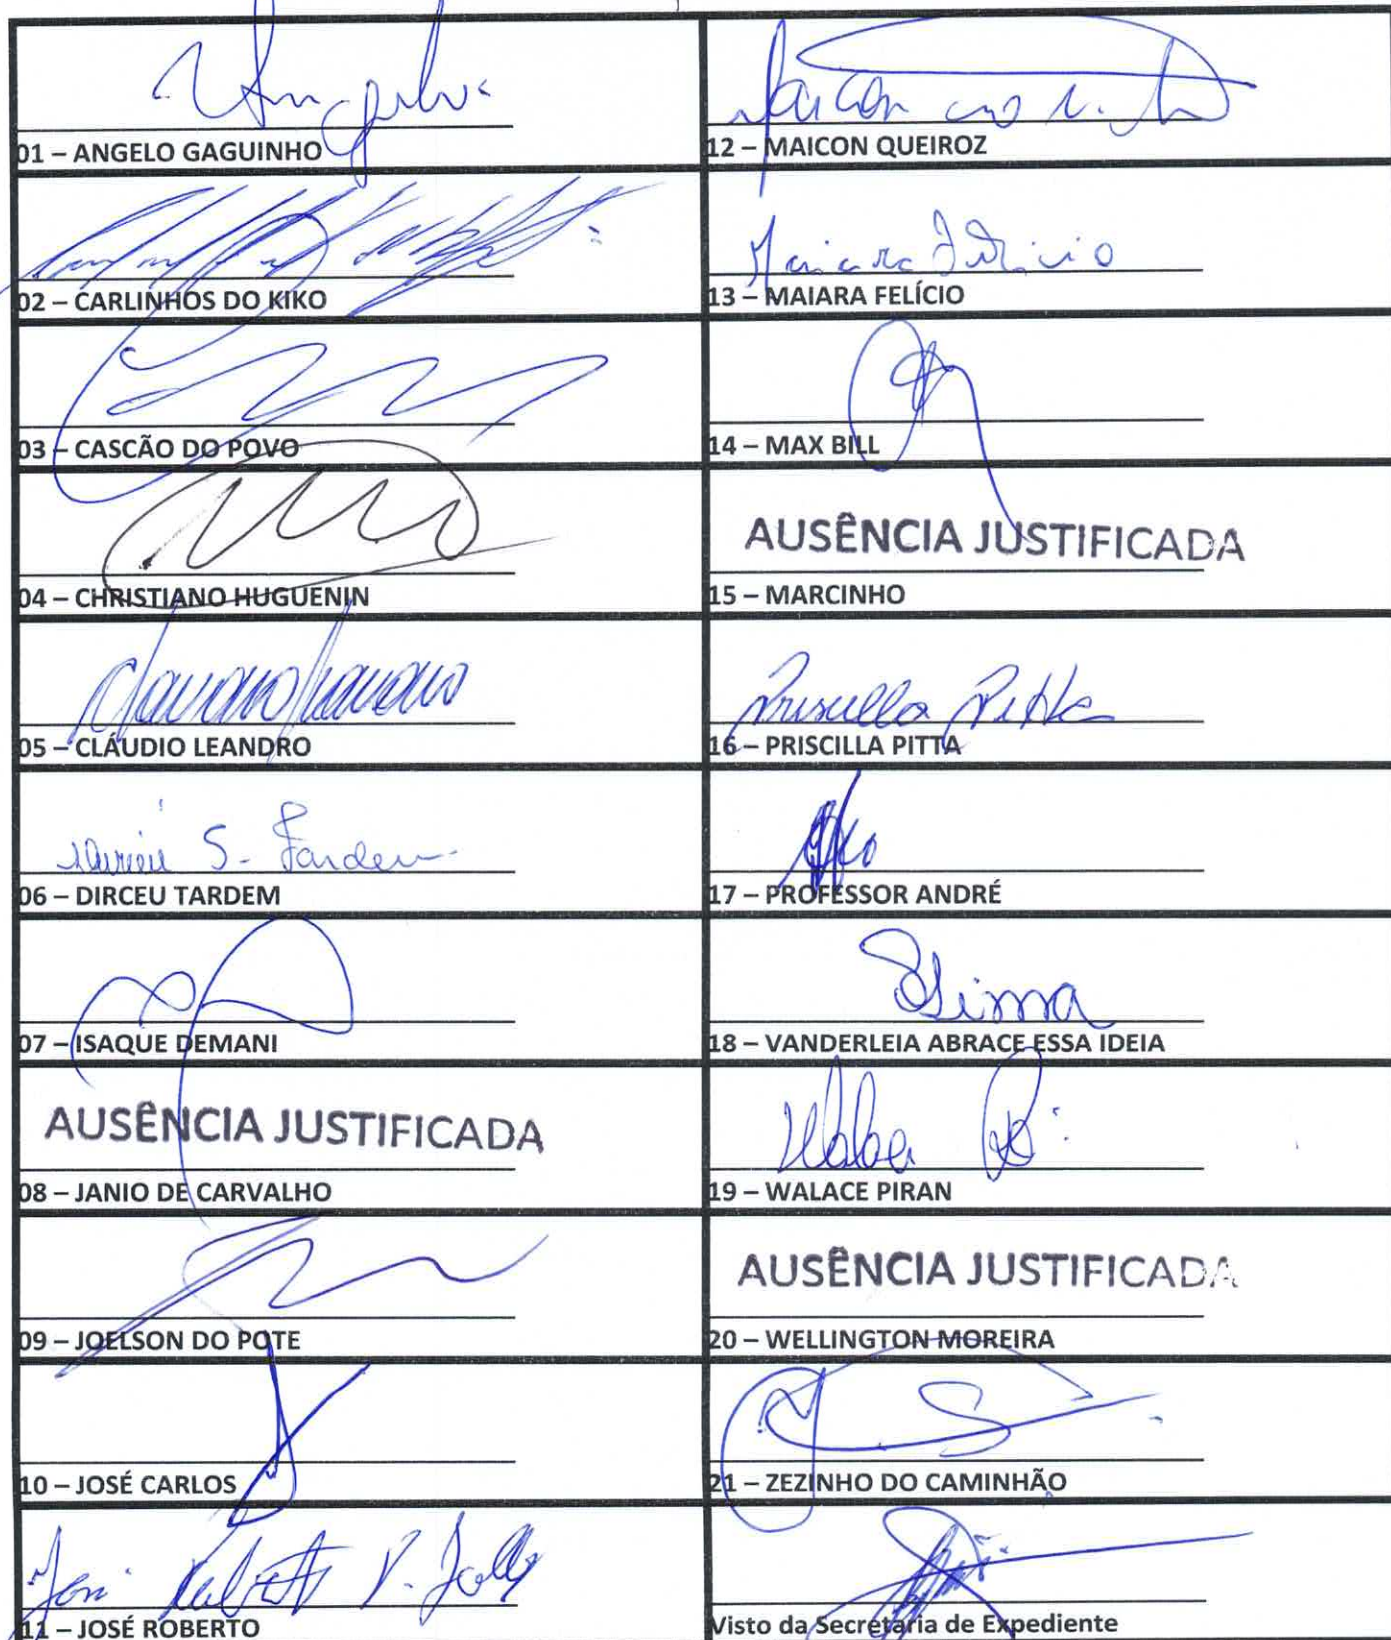 Angelo
01 – ANGELO GAGUINHO
02 – CARLINHOS DO KIKO
03 – CASCÃO DO POVO
04 – CHRISTIANO HUGUENIN
05 – CLÁUDIO LEANDRO
Dirceu S. Tardem
06 – DIRCEU TARDEM
07 – ISAQUE DEMANI
AUSÊNCIA JUSTIFICADA
08 – JANIO DE CARVALHO
09 – JOELSON DO POTE
10 – JOSÉ CARLOS
José Roberto P. Folly
11 – JOSÉ ROBERTO
Maicon
12 – MAICON QUEIROZ
Maiara Felicio
13 – MAIARA FELÍCIO
14 – MAX BILL
AUSÊNCIA JUSTIFICADA
15 – MARCINHO
Priscilla Pitta
16 – PRISCILLA PITTA
17 – PROFESSOR ANDRÉ
Lima
18 – VANDERLEIA ABRACE ESSA IDEIA
Walace P.
19 – WALACE PIRAN
AUSÊNCIA JUSTIFICADA
20 – WELLINGTON MOREIRA
21 – ZEZINHO DO CAMINHÃO
Visto da Secretaria de Expediente